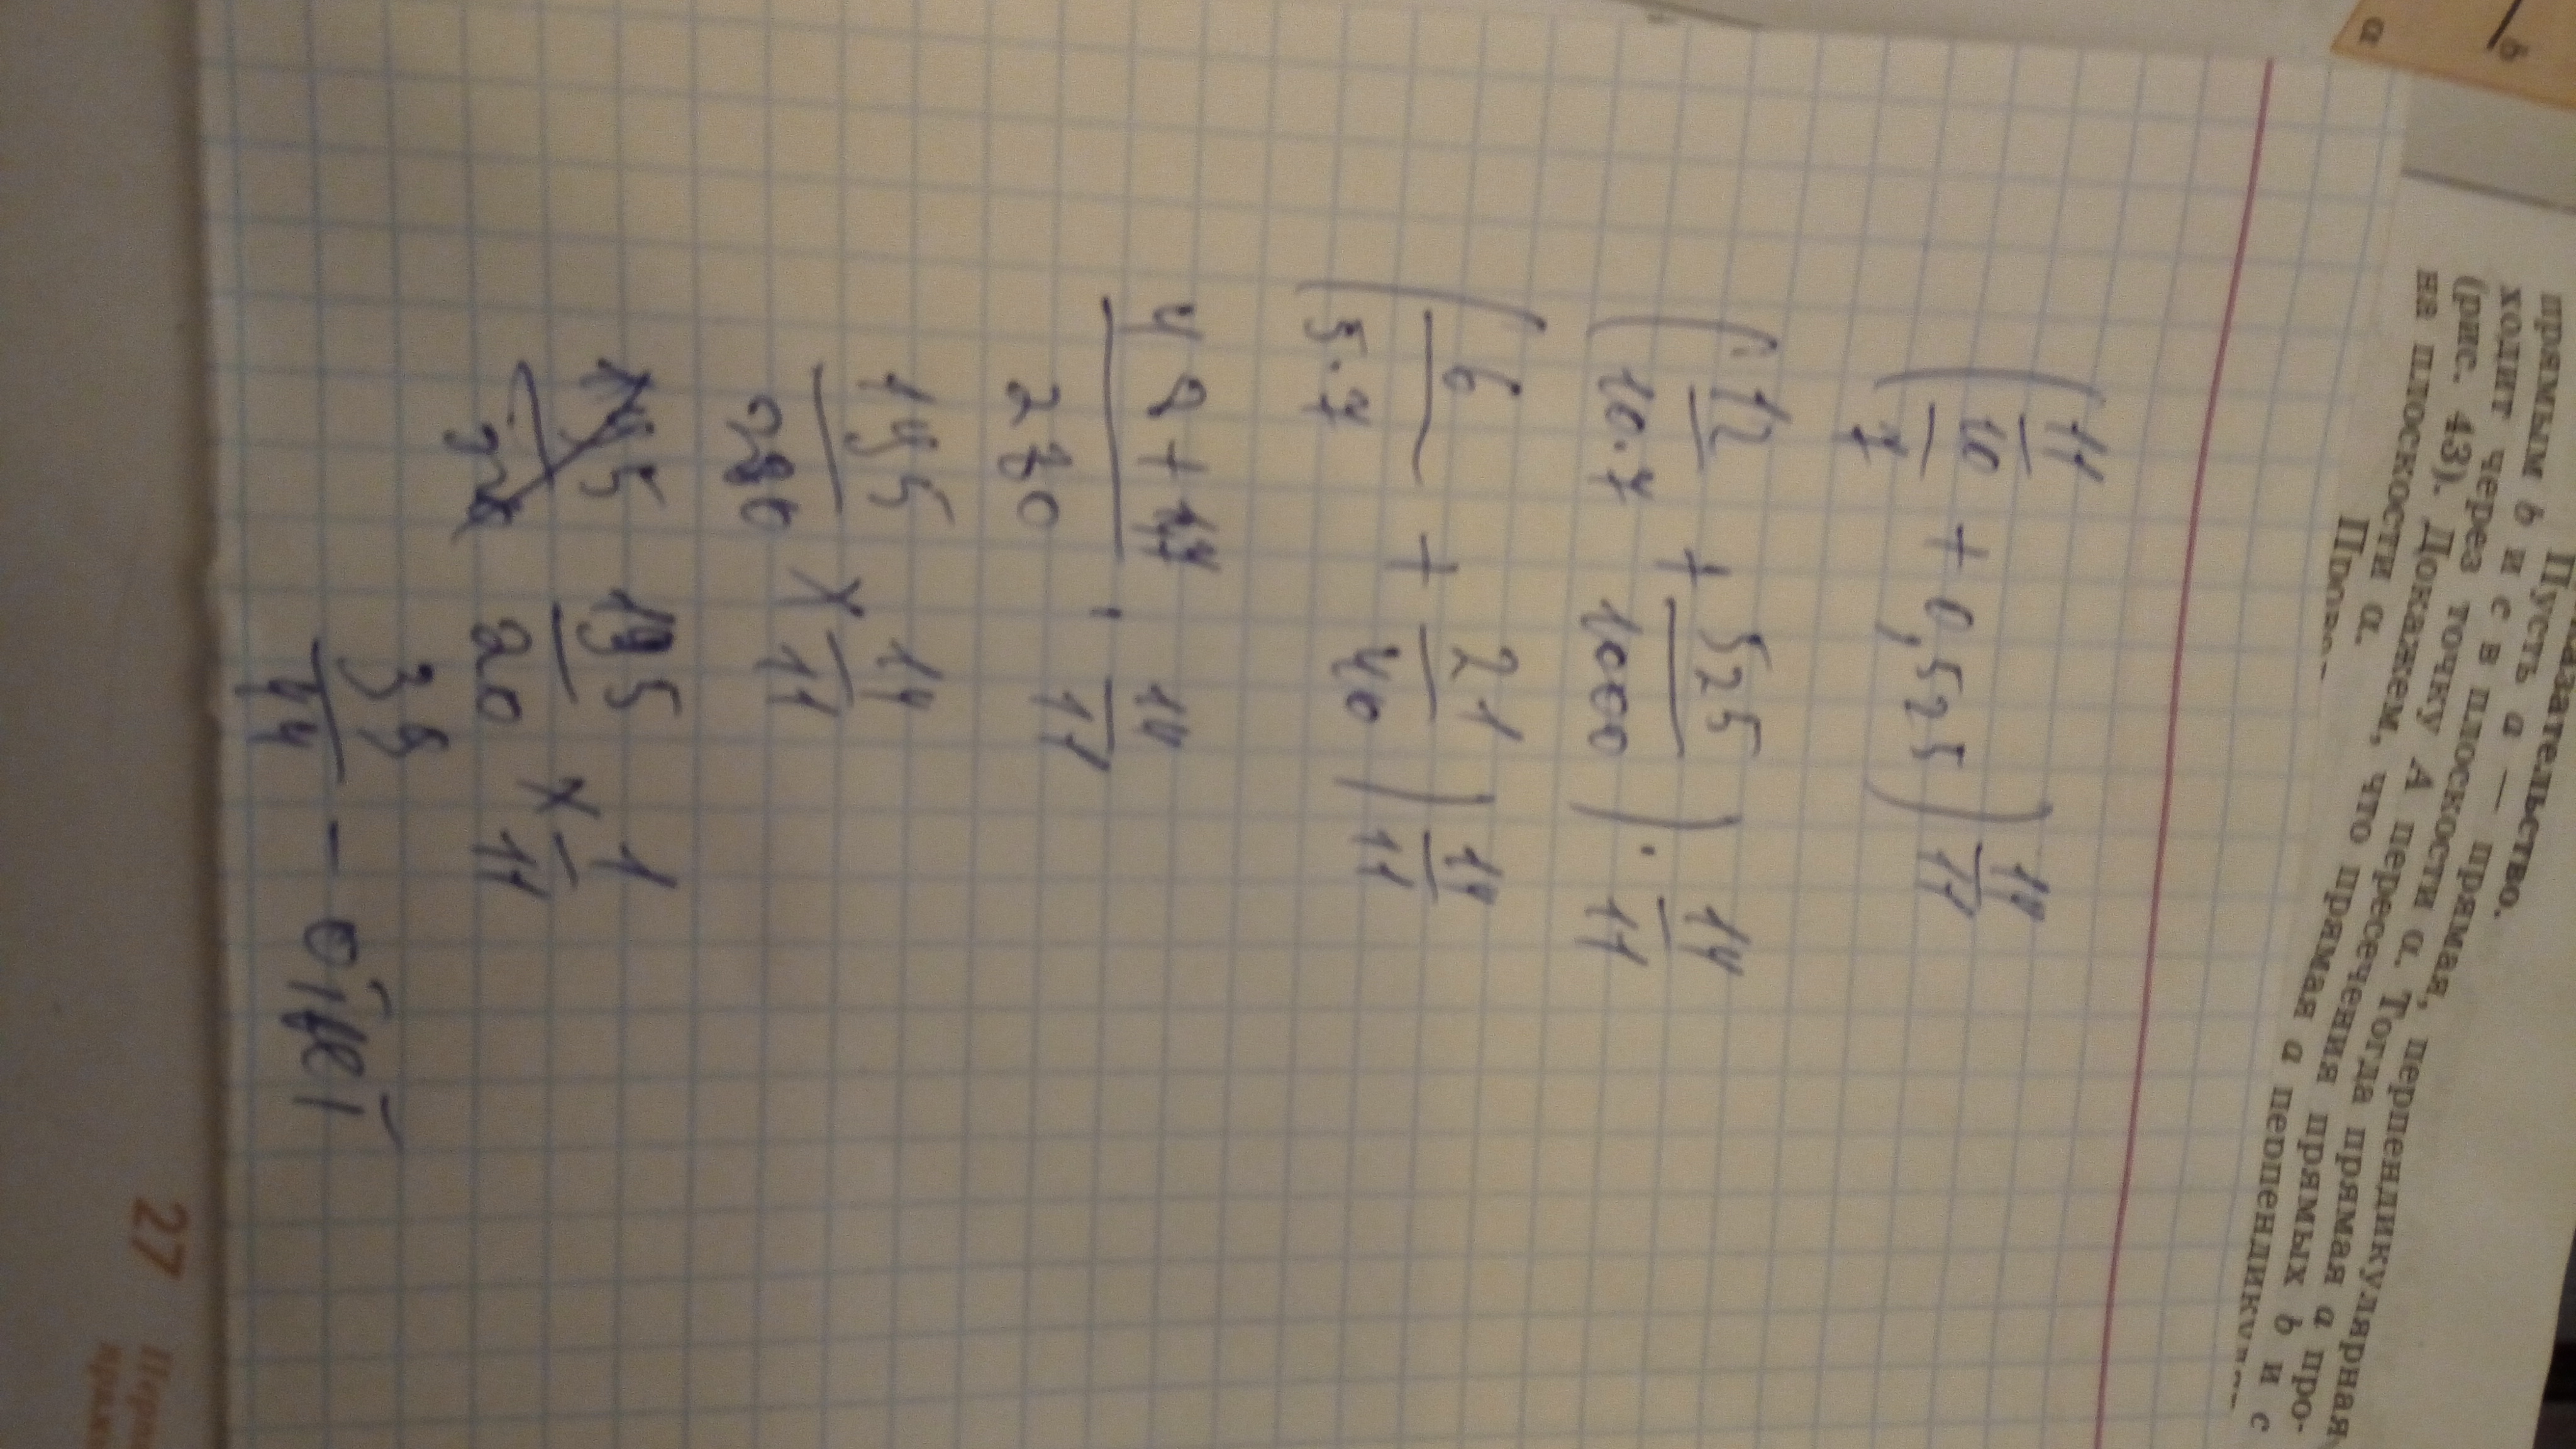 Пусть a — прямая, перпендикулярная
прямым b и c в плоскости α. Тогда прямая a про-
ходит через точку A пересечения прямых b и c
(рис. 43). Докажем, что прямая a перпендику
на плоскости α.
b
α
(11/10/7 + 0,525) 14/11
(12/10.7 + 525/1000) · 14/11
(6/5.7 + 21/40) 14/11
42+147/280 · 14/11
195/280 x 14/11
195/20 x 1/11
39/44 - ответ
27